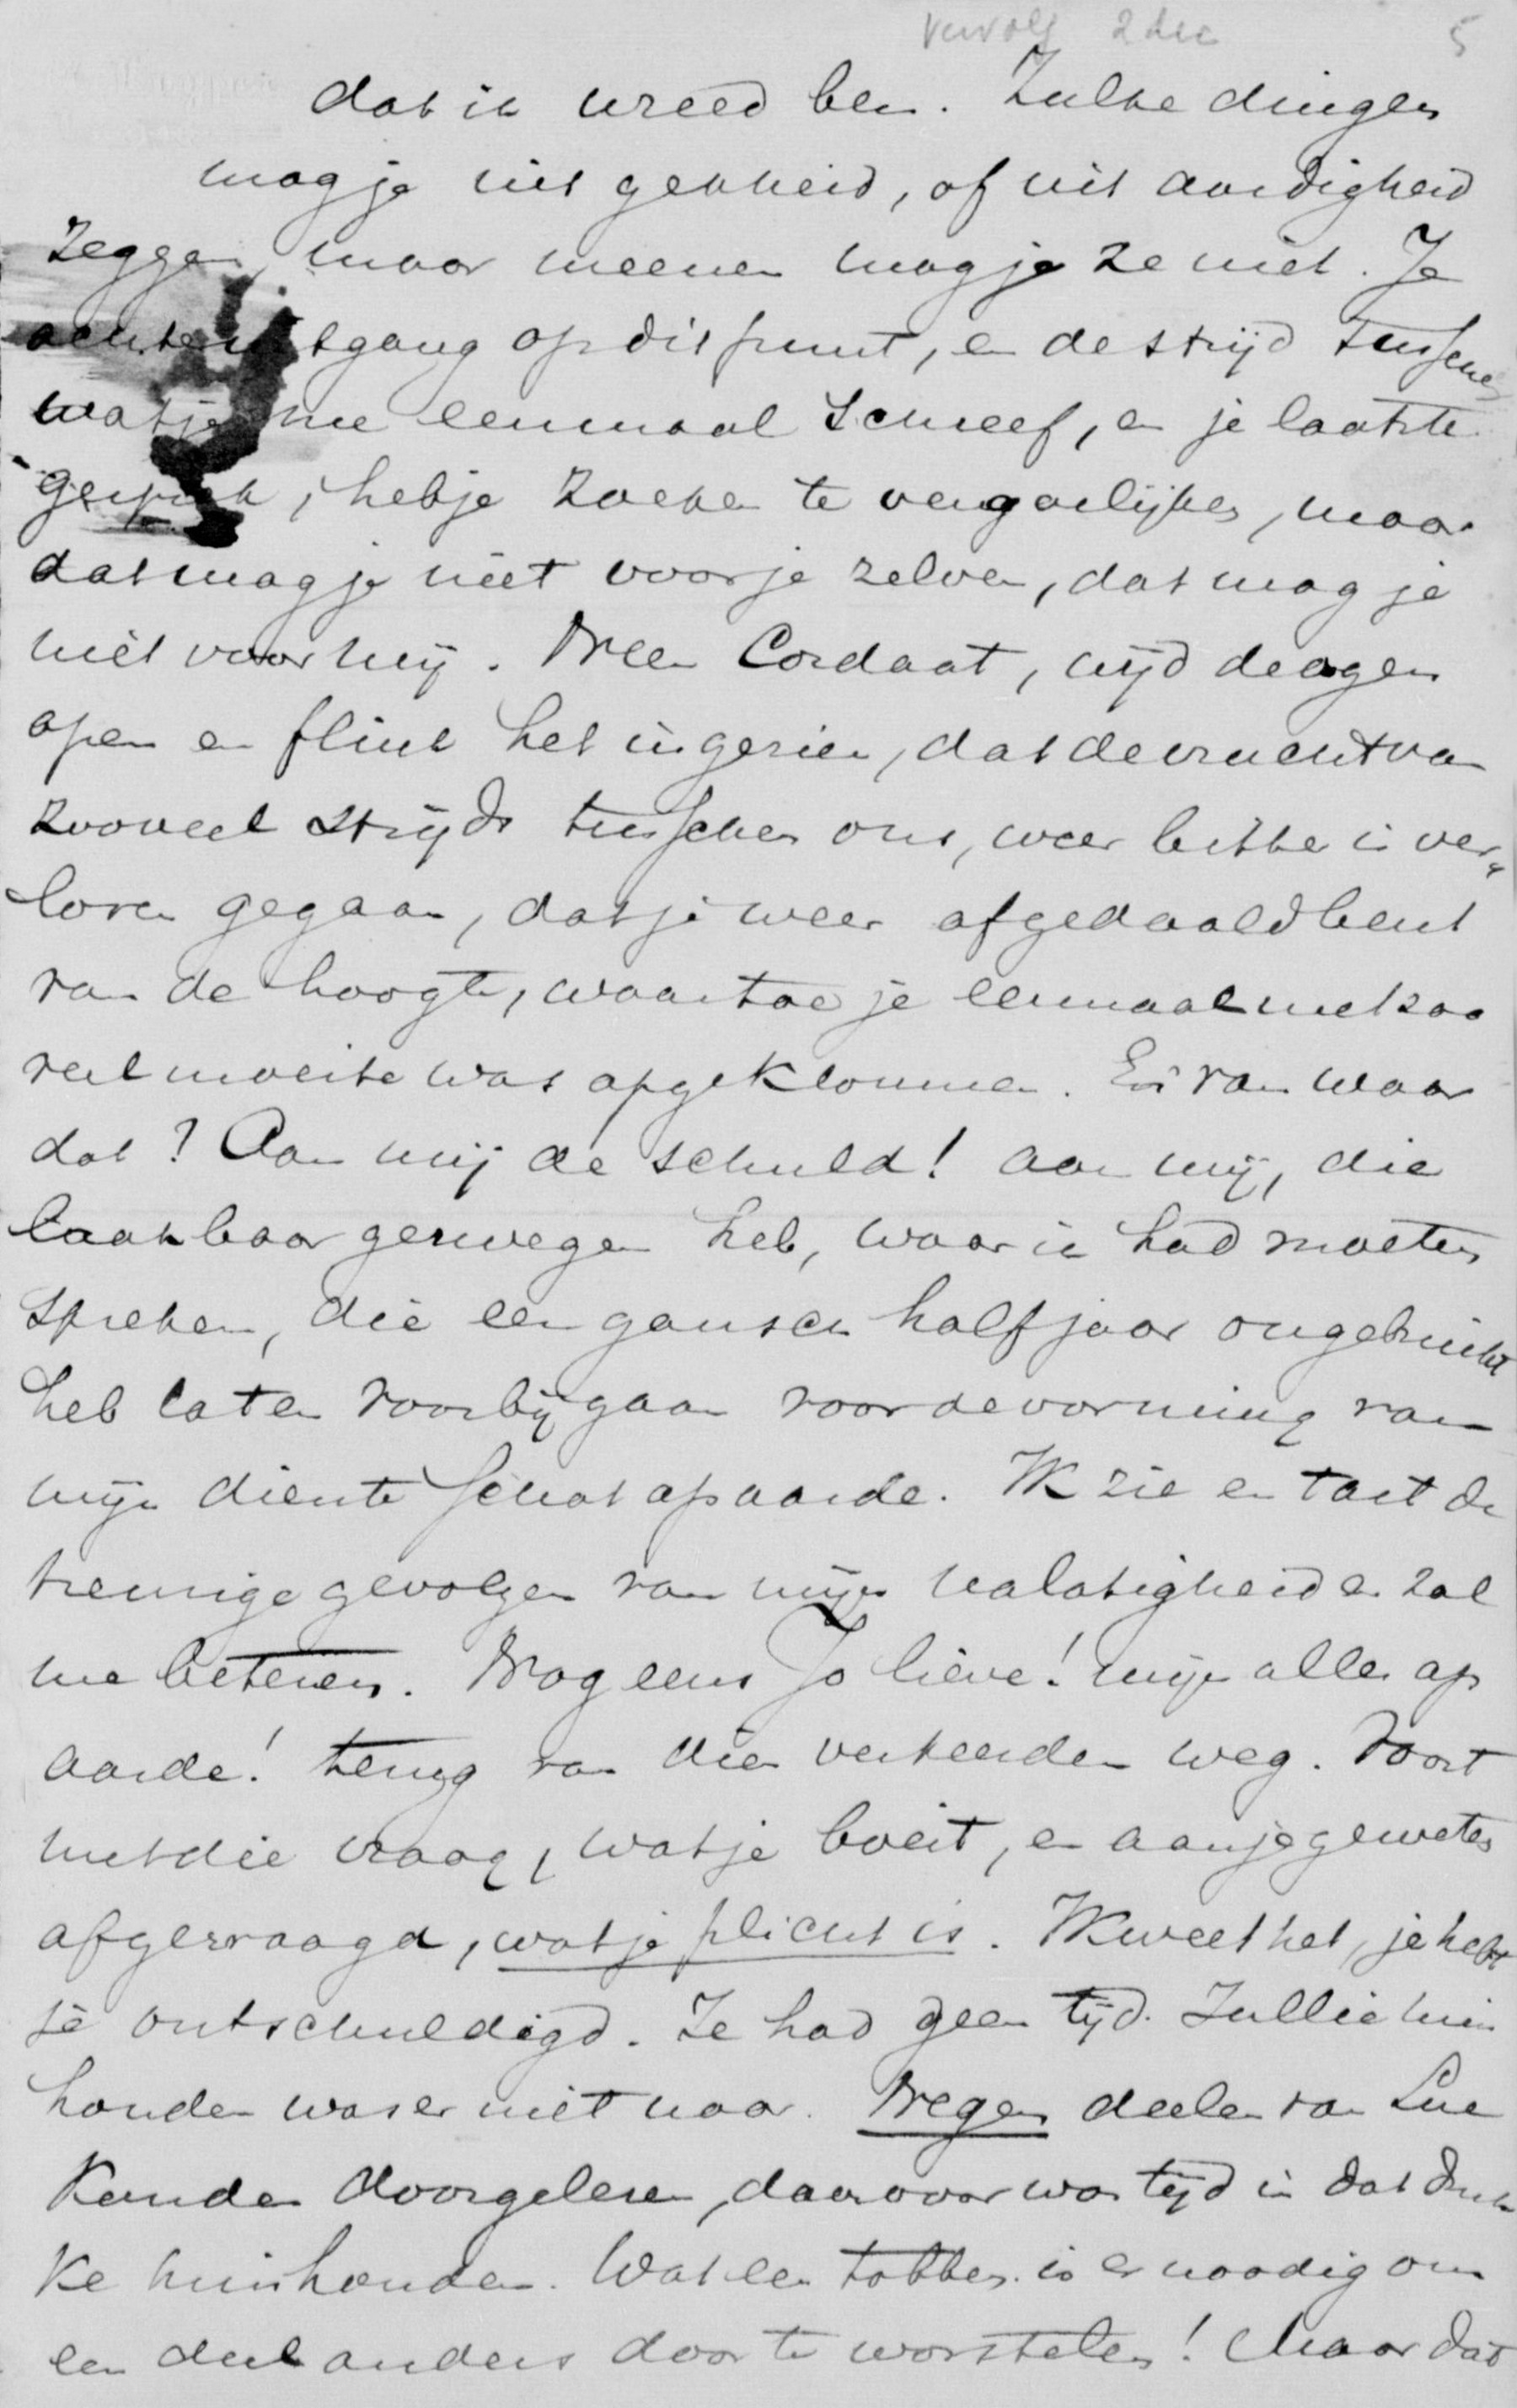 vervolg 2 dec 5
dat ik wreed ben. Zulke dingen
mag je uit gekheid, of uit aardigheid
zeggen, maar meenen mag je ze niet. Je
achteruitgang op dit punt, en de strijd tusschen
wat je me eenmaal schreef, en je laatste
gesprek, heb je zoeken te vergoelijken, maar
dat mag je niet voor je zelven, dat mag je
niet voor mij. Neen Cordaat, wijd de oogen
open en flink het ingezien, dat de vrucht van
zooveel strijds tusschen ons, weer bitter is ver„
loren gegaan, dat je weer afgedaald bent
van de hoogte, waartoe je eenmaal met zoo
veel moeite was opgeklommen. En van waar
dat? Aan mij de schuld! aan mij, die
laakbaar gezwegen heb, waar ik had moeten
spreken, die een gansch half jaar ongebruikt
heb laten voorbijgaan voor de vorming van
mijn dierste schat op aarde. Ik zie en tast de
treurige gevolgen van mijn nalatigheid en zal
me beteren. Nog eens Jo lieve! mijn alles op
aarde! terug van dien verkeerden weg. Voort
met die vraag, wat je boeit, en aan je geweten
afgevraagd, wat je plicht is. Ik weet het, je hebt
je ontschuldigd. Je had geen tijd. Jullie huis
houden was er niet naar. Negen deelen van Sue
konden doorgelezen, daarvoor was tijd in dat druk
ke huishouden. Wat een tobben is er noodig om
een deel anders door te worstelen! Maar dat